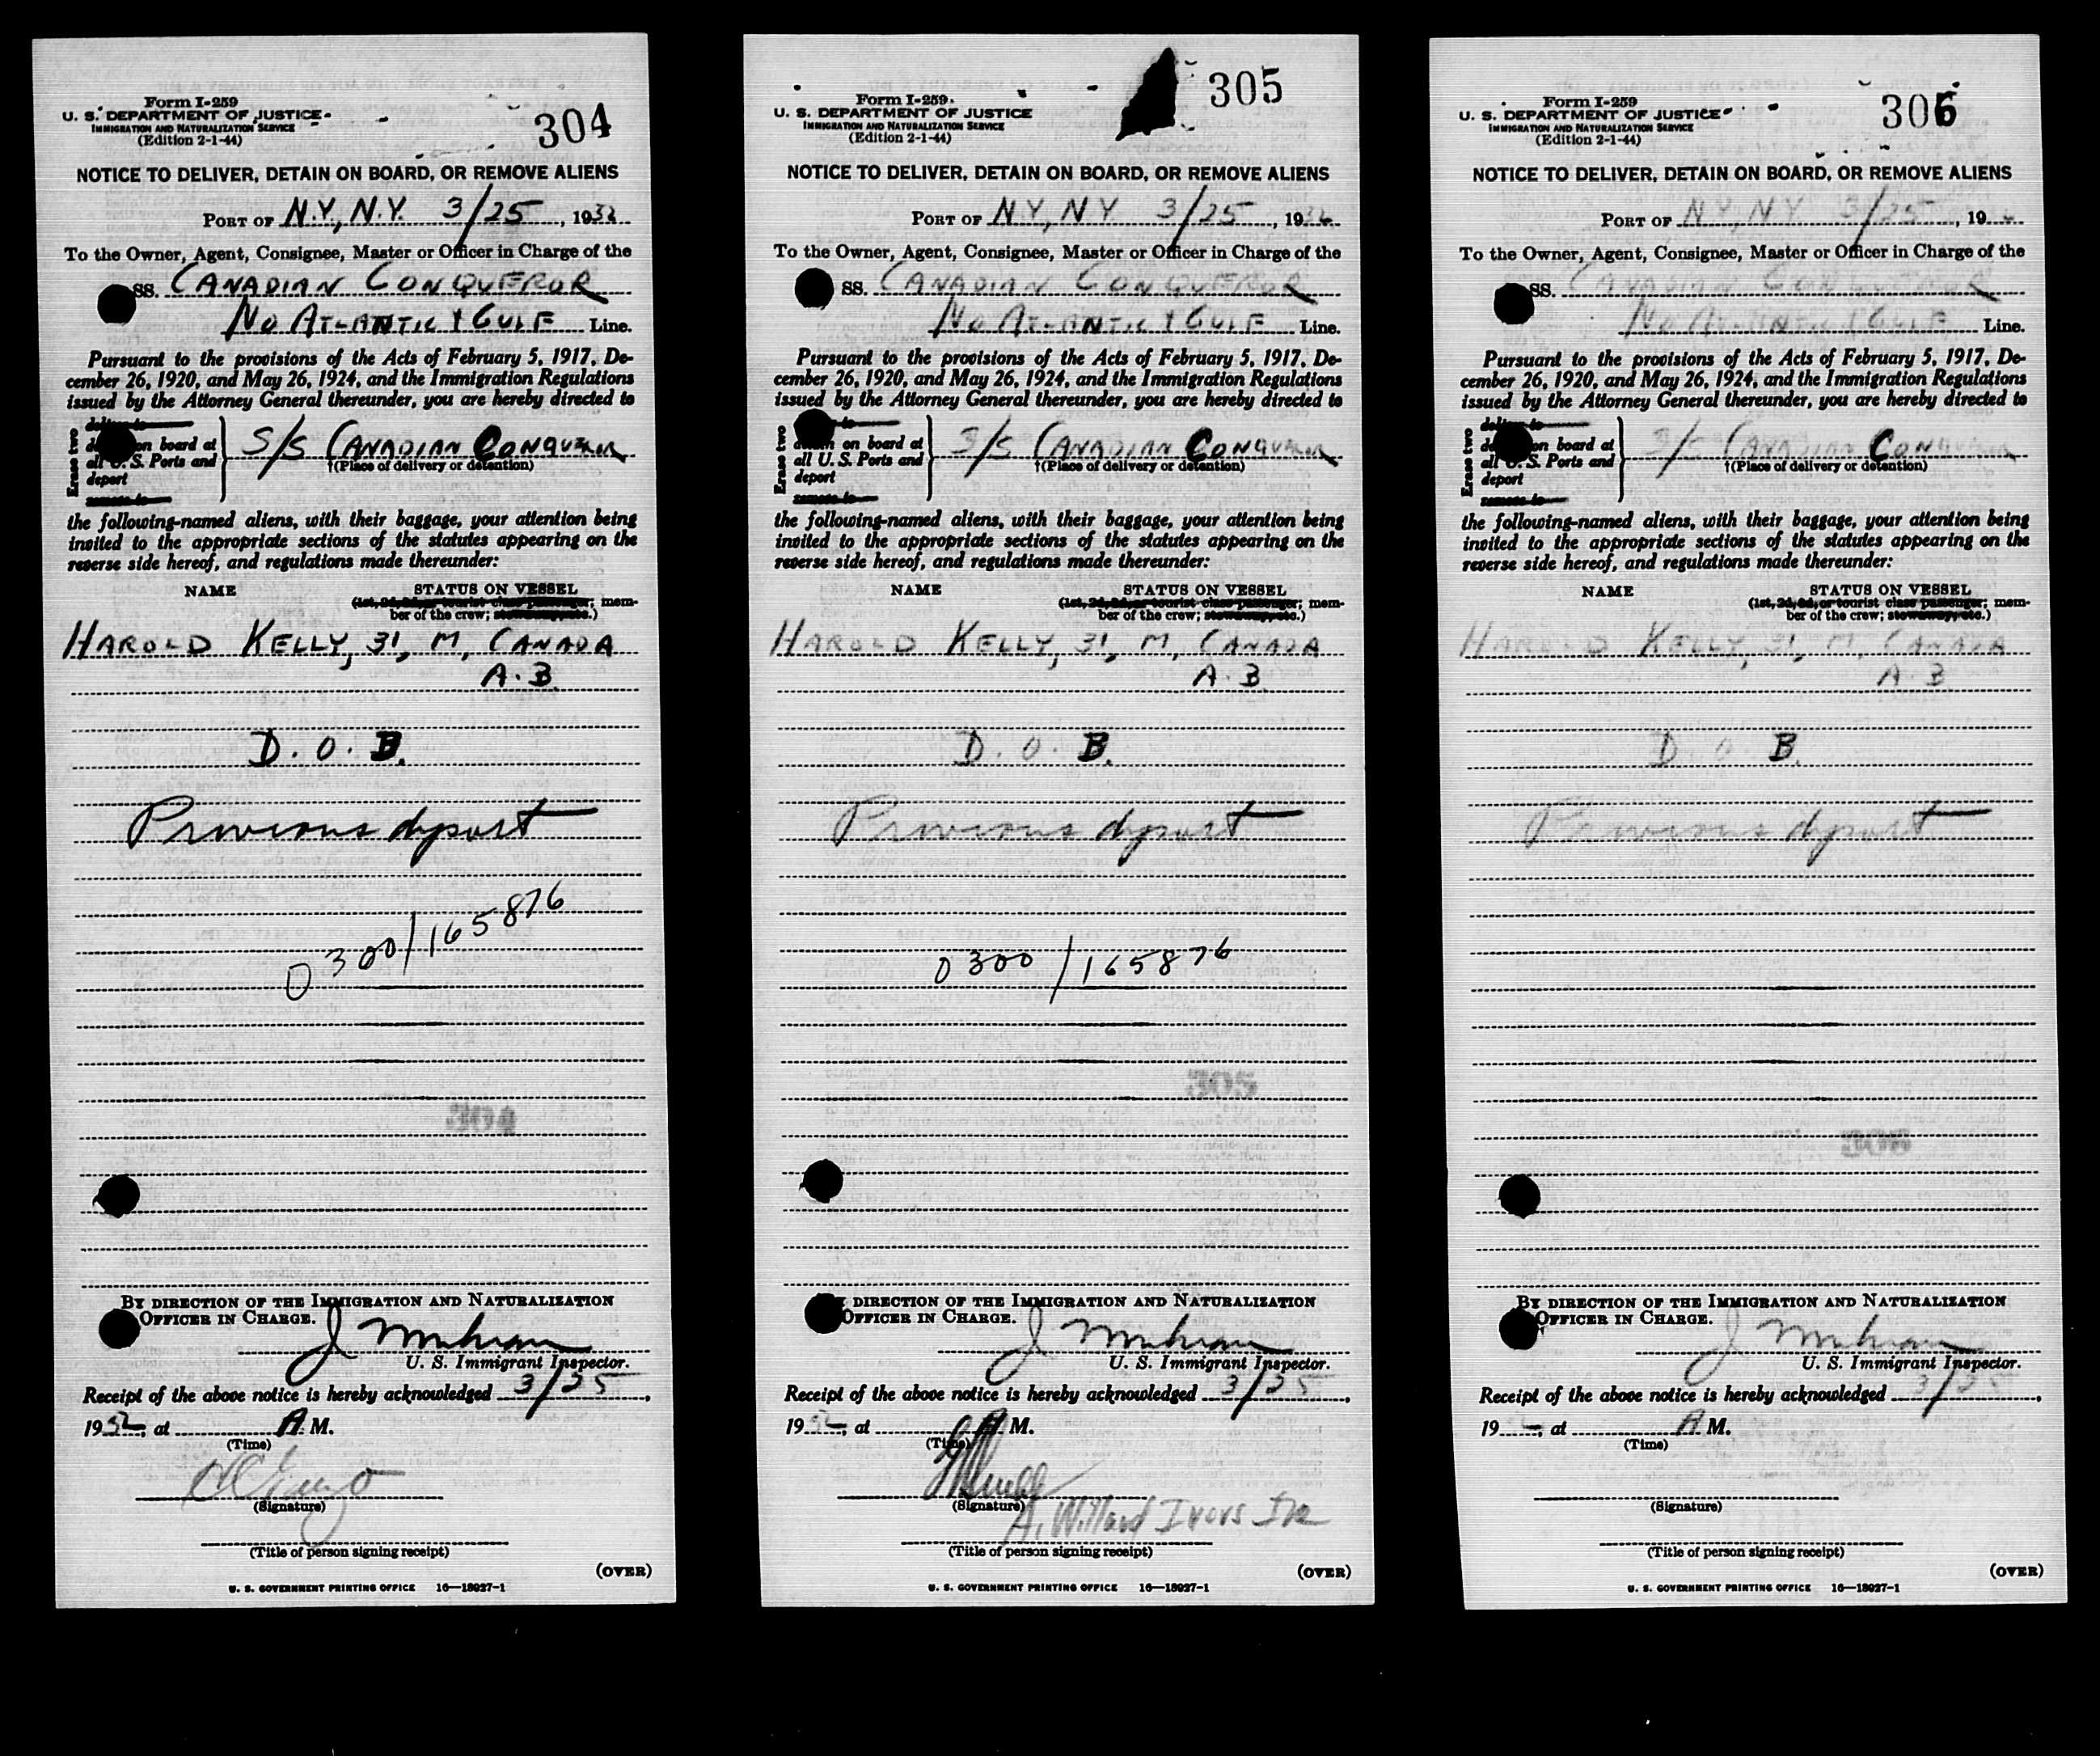 Form I-259
U. S. DEPARTMENT OF JUSTICE
IMMIGRATION AND NATURALIZATION SERVICE
(Edition 2-1-44)
304
NOTICE TO DELIVER, DETAIN ON BOARD, OR REMOVE ALIENS
PORT OF N.Y., N.Y. 3/25, 1952
To the Owner, Agent, Consignee, Master or Officer in Charge of the
SS. CANADIAN CONQUEROR
NO ATLANTIC & GULF Line.
Pursuant to the provisions of the Acts of February 5, 1917, De-
cember 26, 1920, and May 26, 1924, and the Immigration Regulations
issued by the Attorney General thereunder, you are hereby directed to
Erase two
on board at
all U. S. Ports and
deport
S/S CANADIAN CONQUEROR
†(Place of delivery or detention)
the following-named aliens, with their baggage, your attention being
invited to the appropriate sections of the statutes appearing on the
reverse side hereof, and regulations made thereunder:
NAME STATUS ON VESSEL
(1st, 2d, 3d, or tourist class passenger; mem-
ber of the crew; stowaway, etc.)
HAROLD KELLY, 31, M, CANADA
A.B.
D.O.B.
Previous deport
0300/165876
304
BY DIRECTION OF THE IMMIGRATION AND NATURALIZATION
OFFICER IN CHARGE.
J
U. S. Immigrant Inspector.
Receipt of the above notice is hereby acknowledged 3/25,
1952, at A.M.
(Time)
(Signature)
(Title of person signing receipt)
(OVER)
U. S. GOVERNMENT PRINTING OFFICE 16—18927-1
Form I-259
U. S. DEPARTMENT OF JUSTICE
IMMIGRATION AND NATURALIZATION SERVICE
(Edition 2-1-44)
305
NOTICE TO DELIVER, DETAIN ON BOARD, OR REMOVE ALIENS
PORT OF N.Y., N.Y. 3/25, 1952
To the Owner, Agent, Consignee, Master or Officer in Charge of the
SS. CANADIAN CONQUEROR
NO ATLANTIC & GULF Line.
Pursuant to the provisions of the Acts of February 5, 1917, De-
cember 26, 1920, and May 26, 1924, and the Immigration Regulations
issued by the Attorney General thereunder, you are hereby directed to
Erase two
on board at
all U. S. Ports and
deport
S/S CANADIAN CONQUEROR
†(Place of delivery or detention)
the following-named aliens, with their baggage, your attention being
invited to the appropriate sections of the statutes appearing on the
reverse side hereof, and regulations made thereunder:
NAME STATUS ON VESSEL
(1st, 2d, 3d, or tourist class passenger; mem-
ber of the crew; stowaway, etc.)
HAROLD KELLY, 31, M, CANADA
A.B
D.O.B.
Previous deport
0300/165876
305
DIRECTION OF THE IMMIGRATION AND NATURALIZATION
OFFICER IN CHARGE.
J
U. S. Immigrant Inspector.
Receipt of the above notice is hereby acknowledged 3/25,
1952, at A.M.
(Time)
(Signature)
A. Willard Ivers Inc
(Title of person signing receipt)
(OVER)
U. S. GOVERNMENT PRINTING OFFICE 16—18927-1
Form I-259
U. S. DEPARTMENT OF JUSTICE
IMMIGRATION AND NATURALIZATION SERVICE
(Edition 2-1-44)
306
NOTICE TO DELIVER, DETAIN ON BOARD, OR REMOVE ALIENS
PORT OF N.Y., N.Y. 3/25, 19
To the Owner, Agent, Consignee, Master or Officer in Charge of the
SS. CANADIAN CONQUEROR
NO ATLANTIC & GULF Line.
Pursuant to the provisions of the Acts of February 5, 1917, De-
cember 26, 1920, and May 26, 1924, and the Immigration Regulations
issued by the Attorney General thereunder, you are hereby directed to
Erase two
on board at
all U. S. Ports and
deport
S/S CANADIAN CONQUEROR
†(Place of delivery or detention)
the following-named aliens, with their baggage, your attention being
invited to the appropriate sections of the statutes appearing on the
reverse side hereof, and regulations made thereunder:
NAME STATUS ON VESSEL
(1st, 2d, 3d, or tourist class passenger; mem-
ber of the crew; stowaway, etc.)
HAROLD KELLY, 31, M, CANADA
A.B
D O B.
Previous deport
BY DIRECTION OF THE IMMIGRATION AND NATURALIZATION
OFFICER IN CHARGE.
J
U. S. Immigrant Inspector.
Receipt of the above notice is hereby acknowledged 3/25,
19 , at A.M.
(Time)
(Signature)
(Title of person signing receipt)
(OVER)
U. S. GOVERNMENT PRINTING OFFICE 16—18927-1